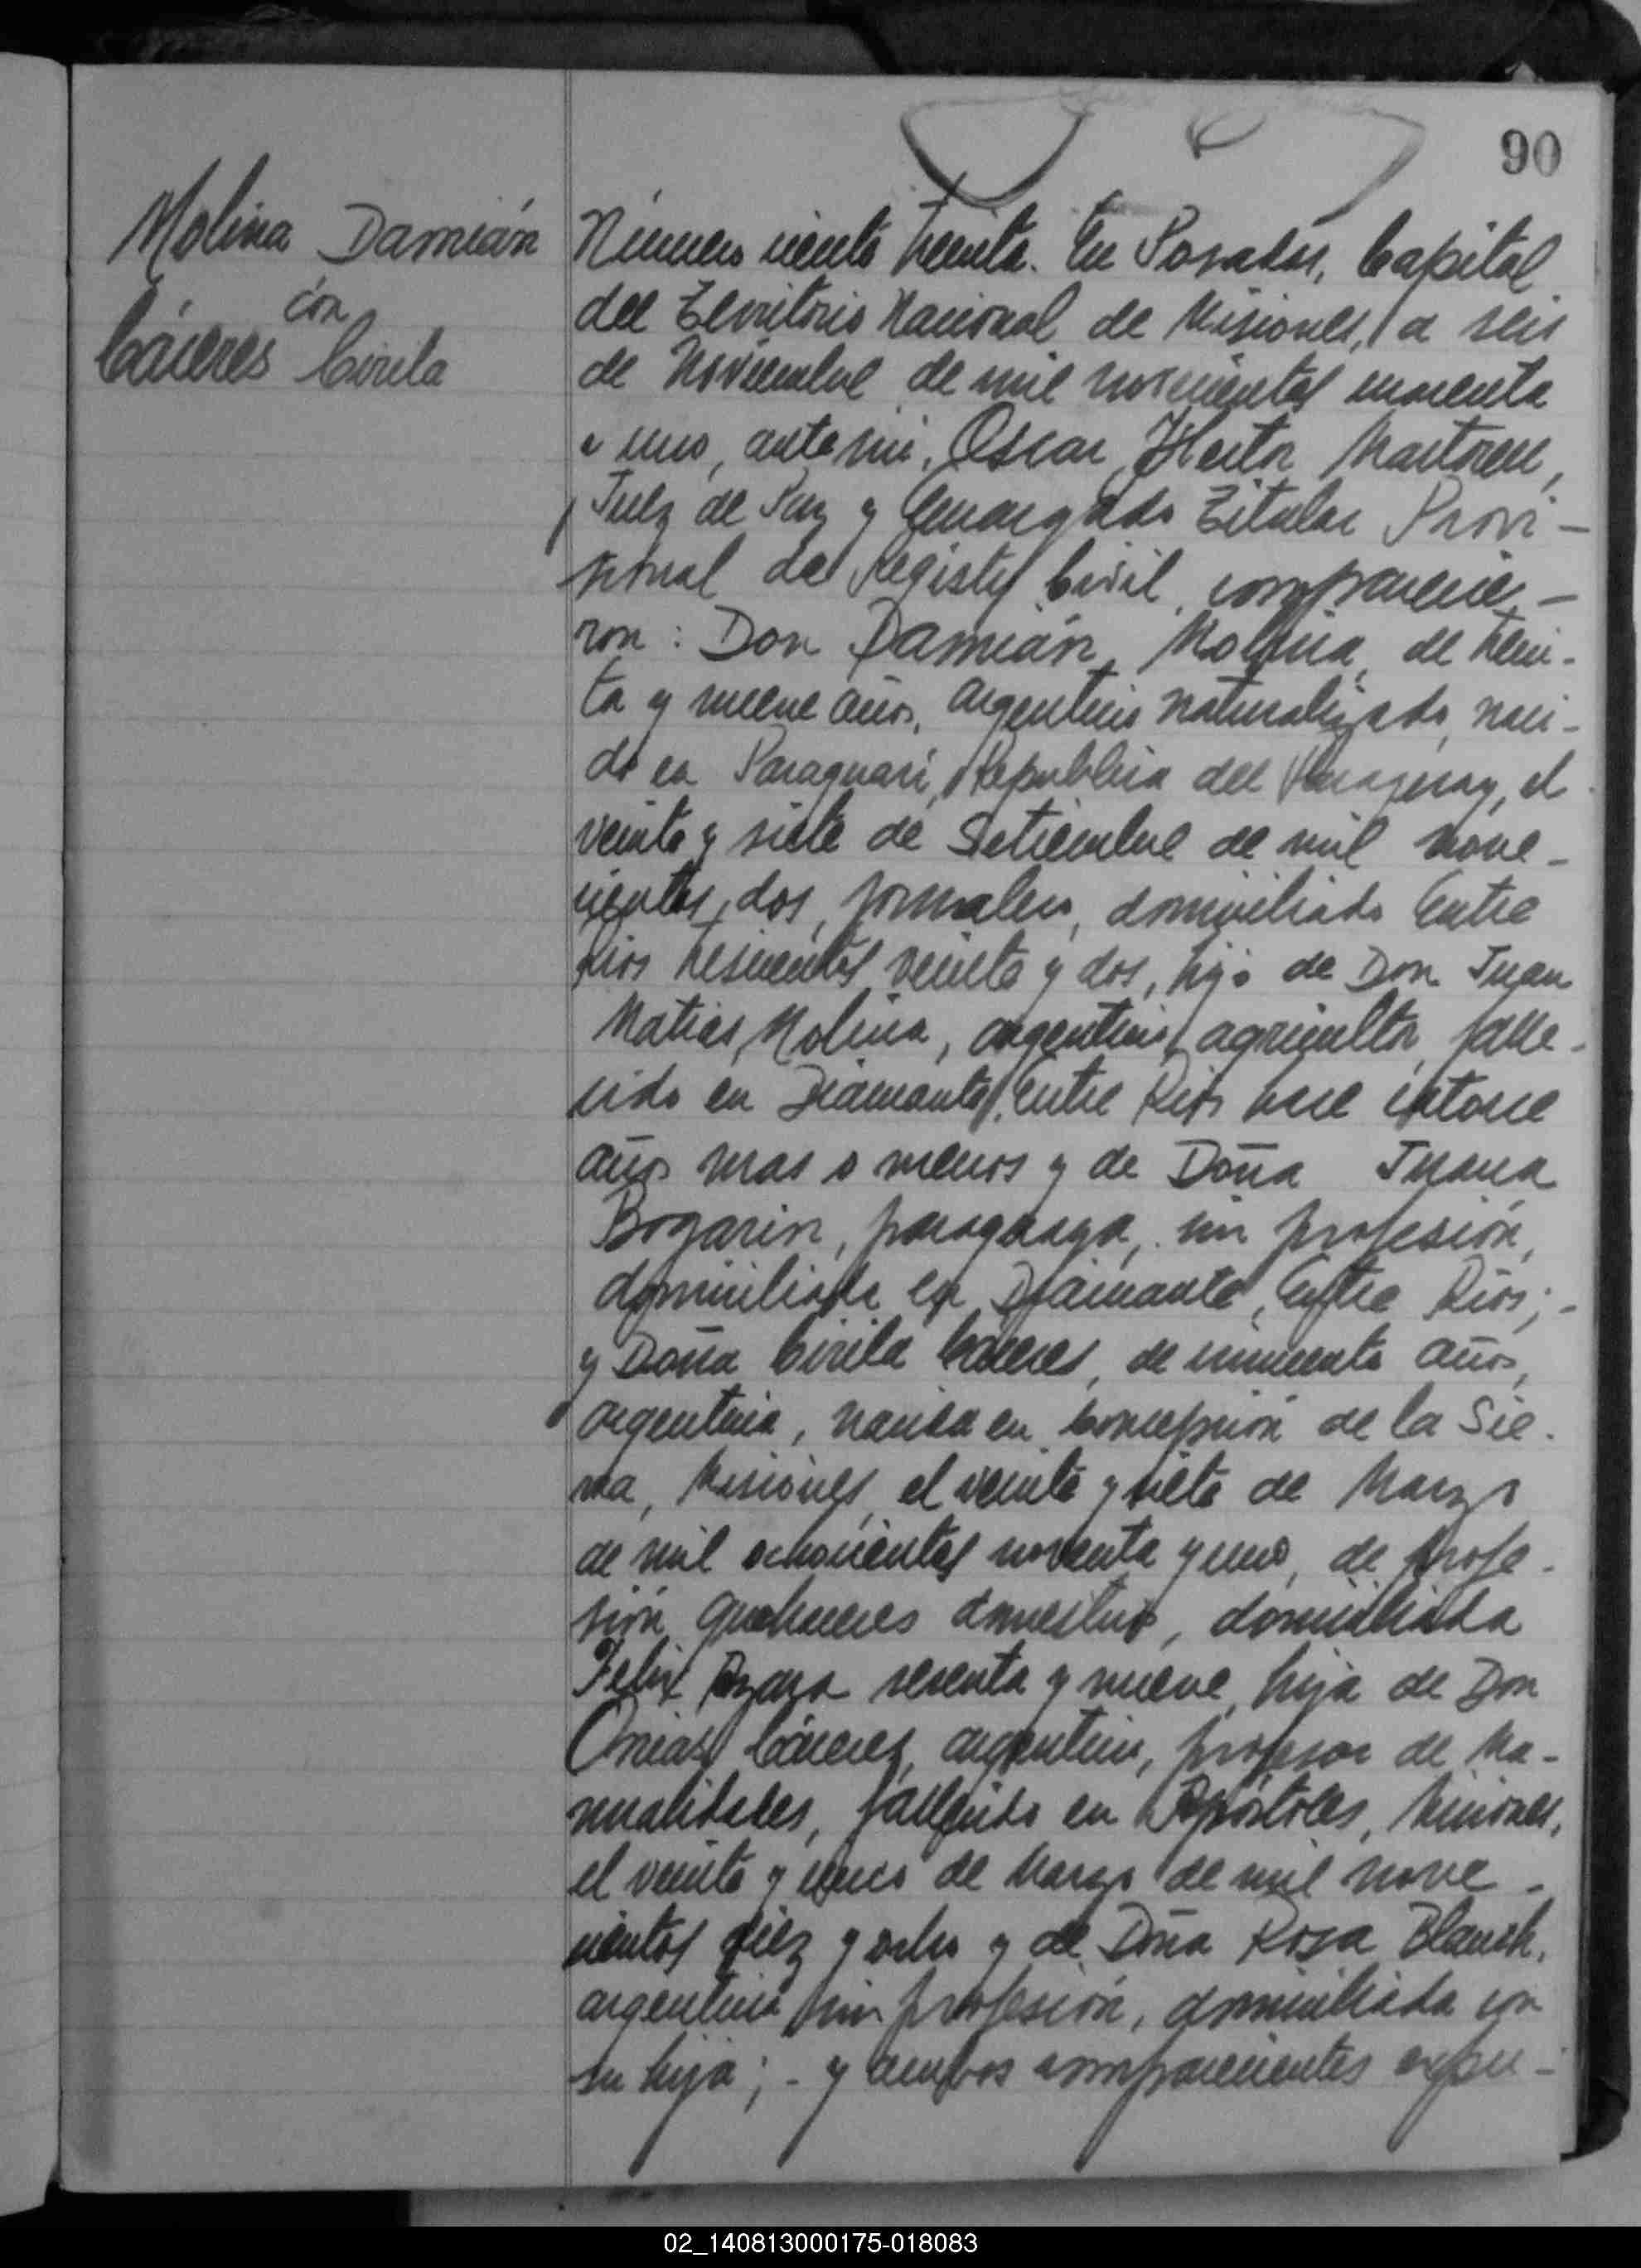 90
Molina Damián
con
Cáceres Cirila
Número ciento treinta. En Posadas, Capital
del Territorio Nacional de Misiones, a seis
de Noviembre de mil novecientos cuarenta
y uno, ante mi, Oscar Hector Martorell,
Juez de Paz y Encargado Titular Provi-
sional del Registro Civil, comparecie-
ron: Don Damián Molina, de trein-
ta y nueve años, argentino naturalizado, naci-
do en Paraguari, Republica del Paraguay, el
veinte y siete de Setiembre de mil nove-
cientos dos, jornalero, domiciliado Entre
Rios trescientos veinte y dos, hijo de Don Juan
Matias Molina, argentino, agricultor, falle-
cido en Diamante, Entre Rios hace catorce
años mas o menos y de Doña Juana
Bogarin, paraguaya, sin profesión,
domiciliada en Diamante, Entre Rios;-
y Doña Cirila Cáceres, de cincuenta años,
argentina, nacida en Concepción de la Sie-
rra, Misiones, el veinte y siete de Marzo
de mil ochocientos noventa y uno, de profe-
sión quehaceres domesticos, domiciliada
Felix Azara sesenta y nueve, hija de Don
Onias Cáceres, argentino, profesor de Ma-
nualidades, fallecido en Apóstoles, Misiones,
el veinte y de Marzo de mil nove-
cientos diez y ocho y de Doña Rosa Blanch,
argentina, sin profesión, domiciliada con
su hija;- y ambos comparecientes expu-
02_140813000175-018083